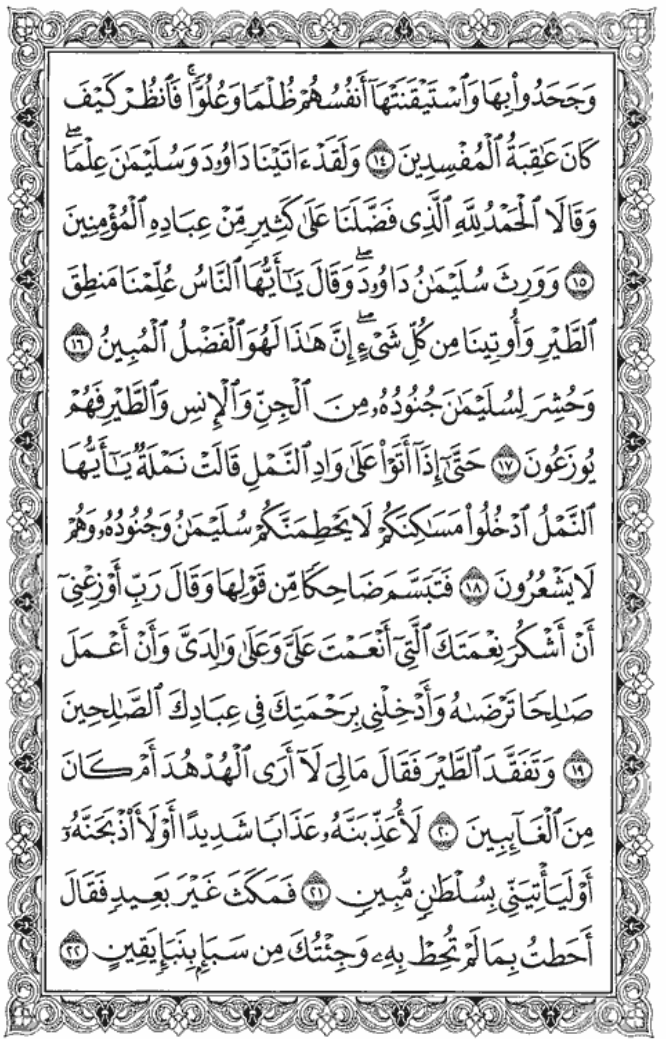 وَجَحَدُوا۟ بِهَا وَٱسْتَيْقَنَتْهَآ أَنفُسُهُمْ ظُلْمًا وَعُلُوًّا ۚ فَٱنظُرْ كَيْفَ
كَانَ عَـٰقِبَةُ ٱلْمُفْسِدِينَ ١٤ وَلَقَدْ ءَاتَيْنَا دَاوُۥدَ وَسُلَيْمَـٰنَ عِلْمًا ۖ
وَقَالَا ٱلْحَمْدُ لِلَّهِ ٱلَّذِى فَضَّلَنَا عَلَىٰ كَثِيرٍ مِّنْ عِبَادِهِ ٱلْمُؤْمِنِينَ
١٥ وَوَرِثَ سُلَيْمَـٰنُ دَاوُۥدَ ۖ وَقَالَ يَـٰٓأَيُّهَا ٱلنَّاسُ عُلِّمْنَا مَنطِقَ
ٱلطَّيْرِ وَأُوتِينَا مِن كُلِّ شَىْءٍ ۖ إِنَّ هَـٰذَا لَهُوَ ٱلْفَضْلُ ٱلْمُبِينُ ١٦
وَحُشِرَ لِسُلَيْمَـٰنَ جُنُودُهُۥ مِنَ ٱلْجِنِّ وَٱلْإِنسِ وَٱلطَّيْرِ فَهُمْ
يُوزَعُونَ ١٧ حَتَّىٰٓ إِذَآ أَتَوْا۟ عَلَىٰ وَادِ ٱلنَّمْلِ قَالَتْ نَمْلَةٌ يَـٰٓأَيُّهَا
ٱلنَّمْلُ ٱدْخُلُوا۟ مَسَـٰكِنَكُمْ لَا يَحْطِمَنَّكُمْ سُلَيْمَـٰنُ وَجُنُودُهُۥ وَهُمْ
لَا يَشْعُرُونَ ١٨ فَتَبَسَّمَ ضَاحِكًا مِّن قَوْلِهَا وَقَالَ رَبِّ أَوْزِعْنِىٓ
أَنْ أَشْكُرَ نِعْمَتَكَ ٱلَّتِىٓ أَنْعَمْتَ عَلَىَّ وَعَلَىٰ وَٰلِدَىَّ وَأَنْ أَعْمَلَ
صَـٰلِحًا تَرْضَىٰهُ وَأَدْخِلْنِى بِرَحْمَتِكَ فِى عِبَادِكَ ٱلصَّـٰلِحِينَ
١٩ وَتَفَقَّدَ ٱلطَّيْرَ فَقَالَ مَالِىَ لَآ أَرَى ٱلْهُدْهُدَ أَمْ كَانَ
مِنَ ٱلْغَآئِبِينَ ٢٠ لَأُعَذِّبَنَّهُۥ عَذَابًا شَدِيدًا أَوْ لَأَا۟ذْبَحَنَّهُۥٓ
أَوْ لَيَأْتِيَنِّى بِسُلْطَـٰنٍ مُّبِينٍ ٢١ فَمَكَثَ غَيْرَ بَعِيدٍ فَقَالَ
أَحَطتُ بِمَا لَمْ تُحِطْ بِهِۦ وَجِئْتُكَ مِن سَبَإٍۭ بِنَبَإٍ يَقِينٍ ٢٢